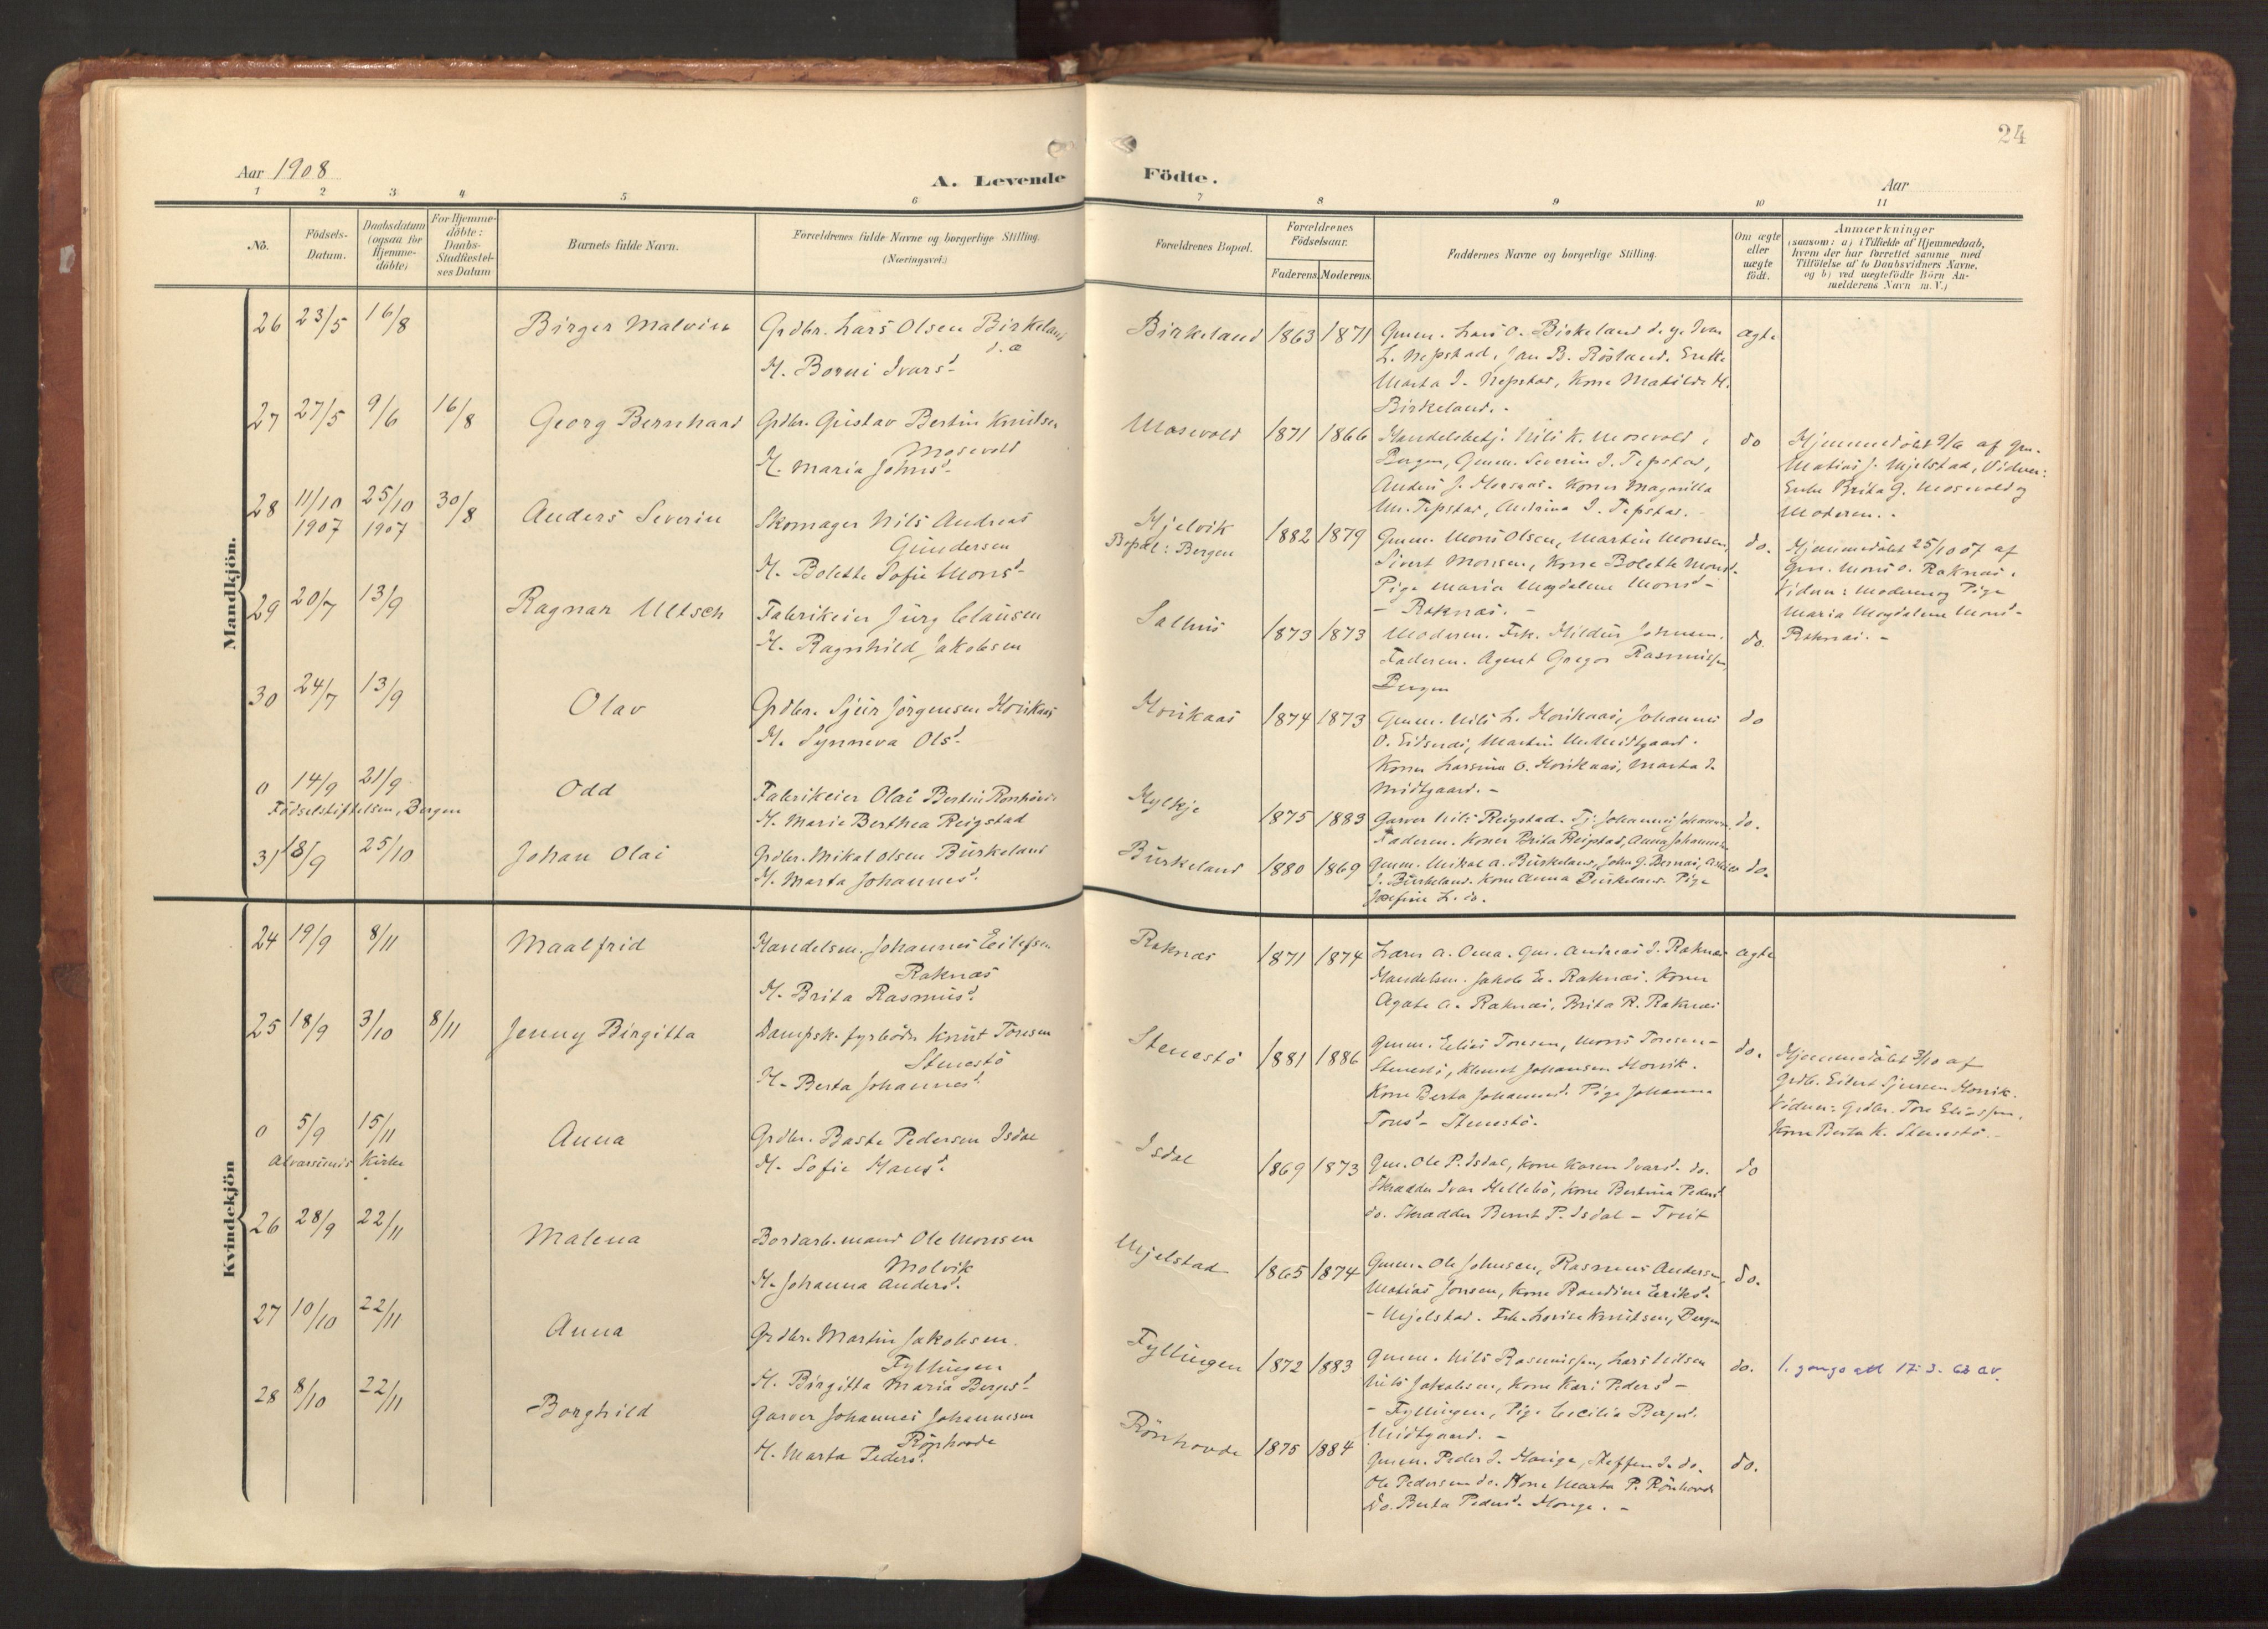 24
Aar 1908
A. Levende Födte.
Aar
1 2 3 4 5 6 7 8 9 10 11
No.
Födsels-
Datum.
Daabsdatum
(ogsaa for
Hjemme-
döbte)
For Hjemme-
döbte:
Daabs-
Stadfæstel-
ses Datum
Barnets fulde Navn.
Forældrenes fulde Navne og borgerlige Stilling.
(Næringsvei.)
Forældrenes Bopæl.
Forældrenes
Födselsaar.
Faderens. Moderens.
Faddernes Navne og borgerlige Stilling.
Om ægte
eller
uægte
födt.
Anmærkninger
(saasom: a) i Tilfælde af Hjemmedaab,
hvem der har forrettet samme med
Tilföielse af to Daabsvidners Navne,
og b) ved uægtefödte Börn An-
melderens Navn m. V.)
Mandkjön.
26 23/5 16/8 Birger Malvin
Grdbr. Lars Olsen Birkeland
d. a
H. Borni Ivarsd.
Birkeland 1863 1871
Gmm. Lars O. Birkeland d. y. Ivar
L. Nepstad, Jan B. Röstand. Enke
Marta I. Nepstad, Kone Matilde H.
Birkeland. -
ægte
27 27/5 9/6 16/8 Georg Bernhard
Grdbr. Gustav Bertin Knutsen
Mosevold
H. Maria Johnsd.
Mosevold 1871 1866
Handelsbetj. Nils K. Mosevold,
Bergen, Gmm. Severin I. Tepstad,
Anders J. Koner Magnilla
M. Tepstad, Andrina I. Tepstad. -
do
Hjemmedöbt 9/6 af Gm.
Matias J. Mjelstad, Vidner:
Enke Brita G. Mosevold og
Moderen. -
28 11/10 1907 25/10 1907 30/8 Anders Severin
Skomager Nils Andreas
Gundersen
H. Bolette Sofie Monsd.
Hjelvik
Bopæl: Bergen
1882 1879
Gmm. Mons Olsen, Martin Monsen,
Sivert Monsen, Kone Bolette Monsd.
Pige Maria Magdalene Monsd. -
- Raknæs. -
do.
Hjemmedöbt 25/10 07 af
Gm. Mons O. Raknæs,
Vidner: Moderen og Pige
Maria Magdalene Monsd. -
Raknæs. -
29 20/7 13/9 Ragnar Ultsch
Fabrikeier Jürg Clausen
H. Ragnhild Jakobsen
Salhus 1873 1873
Moderen. Frk. Hildur Johnsen.
Faderen. Agent Gregor Rasmussen,
Bergen
do.
30 24/7 13/9 Olav
Grdbr. Sjur Jörgensen Horikaas
H. Synneva Olsd.
Horikaas 1874 1873
Gmm. Nils L. Horikaas, Johannes
O. Eidsnæs, Martin M. Midtgaard.
Koner Larsina O. Horikaas, Marta I.
Midtgaard. -
do
0 14/9 21/9 Odd
Födselsstiftelsen, Bergen
Fabrikeier Olai Bertin Rönhovde
H. Marie Berthea Reigstad
Hylkje 1875 1883
Garver Nils Reigstad. Tj. Johannes Johannesen,
Faderen. Koner Brita Reigstad, Anna Johannesen
do.
31 18/9 25/10 Johan Olai
Grdbr. Mikal Olsen Burkeland
H. Marta Johannesd.
Burkeland 1880 1869
Gmm. Mikal A. Burkeland, John G. Bernæs,
J. Burkeland. Kone Anna Burkeland. Pige
Josefine L. do.
do.
Kvindekjön
24 19/9 8/11 Maalfrid
Handelsm. Johannes Eilefsen
Raknæs
H. Brita Rasmusd.
Raknæs 1871 1874
Lærer A. Oma. Gm. Andreas I. Raknæs
Handelsm. Jakob E. Raknæs. Koner
Agate A. Raknæs, Brita R. Raknæs
ægte
25 18/9 3/10 8/11 Jenny Birgitta
Dampsk. fyrböder Knut Tonesen
Stenestö
H. Berta Johannesd.
Stenestö 1881 1886
Gmm. Elias Tonesen, Mons Tonesen -
Stenestö, Klemet Johansen Horvik.
Kone Berta Johannesd. Pige Johanna
Tonesd. - Stenestö.
do.
Hjemmedöbt 3/10 af
Grdb. Eilert Sjursen Horvik.
Vidner: Grdbr. Tore Eliassen,
Kone Berta K. Stenestö. -
0 5/9 15/11 Anna
Alversunds Kirke
Grdbr. Baste Pedersen Isdal
H. Sofie Hansd.
Isdal 1869 1873
Gm. Ole P. Isdal, Kone Karen Ivarsd. do.
Skrædder Ivar Hellebö, Kone Bertina Pedersd.
do. Skrædder Bernt P. Isdal - Tveit
do
26 28/9 22/11 Malena
Bordarb.mand Ole Monsen
Molvik
H. Johanna Andersd.
Mjelstad 1865 1874
Gmm. Ole Johnsen, Rasmus Andersen,
Matias Jonsen, Kone Randine Eriksd.
- Mjelstad. Frk. Lovise Knutsen, Bergen
do.
27 10/10 22/11 Anna
Grdbr. Martin Jakobsen
Fyllingen
H. Birgitta Maria Bergesd.
Fyllingen 1872 1883
Gmm. Nils Rasmussen, Lars Nilsen
Nils Jakobsen, Kone Kari Pedersd. -
- Fyllingen, Pige Cecilia Bergesd.
Midtgaard. -
do. 1. gangs att 17.3.62 av.
28 8/10 22/11 Borghild
Garver Johannes Johannesen
Rönhovde
H. Marta Pedersd.
Rönhovde 1875 1884
Gmm. Peder I. Hauge, Steffen I. do.
Ole Pedersen do. Kone Marta P. Rönhovde
do. Berta Pedersd. Hauge. -
do.